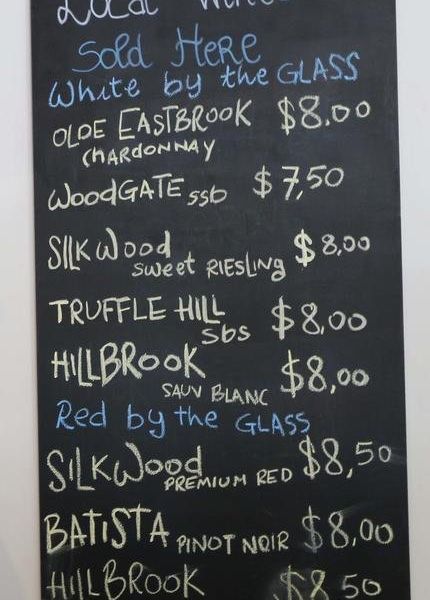 Local Wines
Sold Here
White by the GLASS
OLDE EASTBROOK $8.00
CHARDONNAY
WOODGATE ssb $7,50
SILKWood $8,00
sweet RIESLING
TRUFFLE HILL
sbs $8,00
HILLBROOK
SAUV BLANC $8,00
Red by the GLASS
SILKWood $8,50
PREMIUM RED
BATISTA PINOT NOIR $8,00
HILLBROOK $8 50